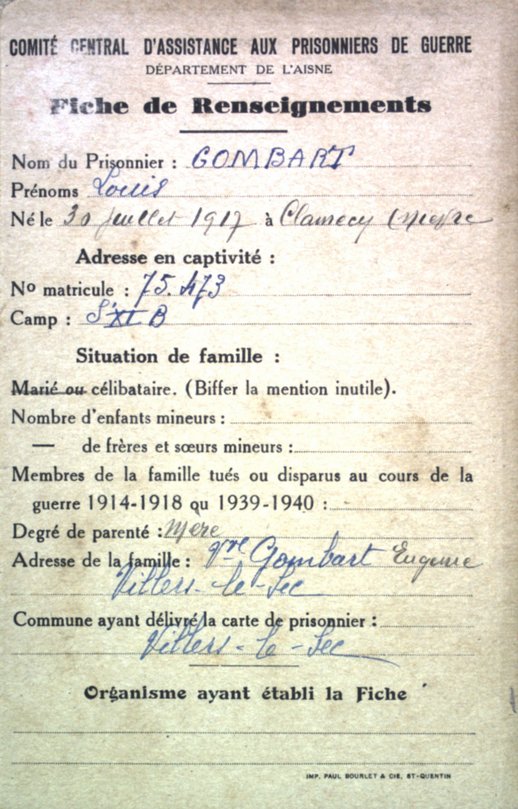 COMITÉ CENTRAL D'ASSISTANCE AUX PRISONNIERS DE GUERRE
DÉPARTEMENT DE L'AISNE
Fiche de Renseignements
Nom du Prisonnier : GOMBART
Prénoms Louis
Né le 30 juillet 1917 à Clamecy (Nièvre
Adresse en captivité :
No matricule : 75.473
Camp : S XI B
Situation de famille :
Marié ou célibataire. (Biffer la mention inutile).
Nombre d'enfants mineurs :
— de frères et sœurs mineurs :
Membres de la famille tués ou disparus au cours de la
guerre 1914-1918 qu 1939-1940 :
Degré de parenté : Mère
Adresse de la famille : Vve Gombart Eugénie
Villers-le-Sec
Commune ayant délivré la carte de prisonnier :
Villers-le-Sec
Organisme ayant établi la Fiche
IMP. PAUL BOURLET & CIE, ST-QUENTIN